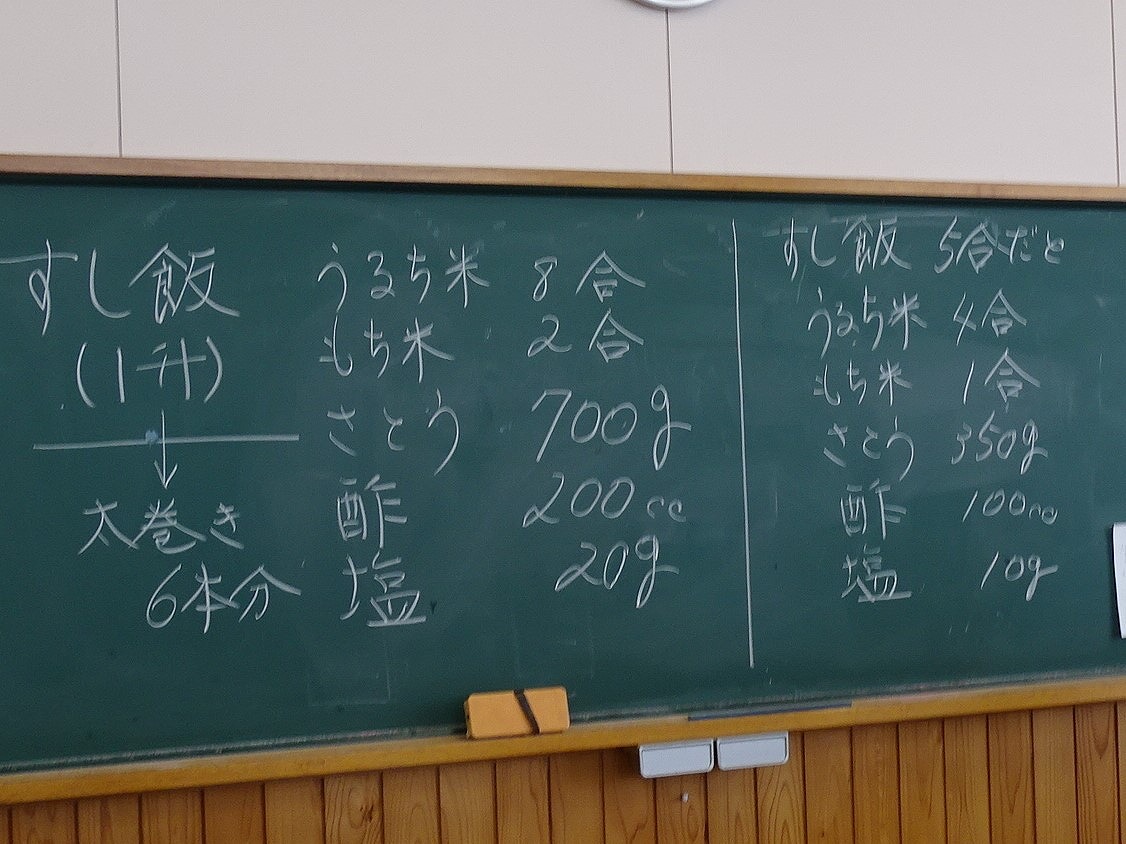 すし飯
(1升)
太巻き
6本分
うるち米 8合
もち米 2合
さとう 700g
酢 200cc
塩 20g
すし飯 5合だと
うるち米 4合
もち米 1合
さとう 350g
酢 100cc
塩 10g